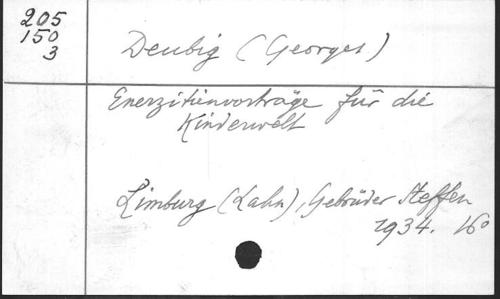 205
150
3
Deubig (Georges)
Enerzitienvorträge für die
Kinderwelt
Limburg (Lahn), Gebrüder Steffen
1934. 16°